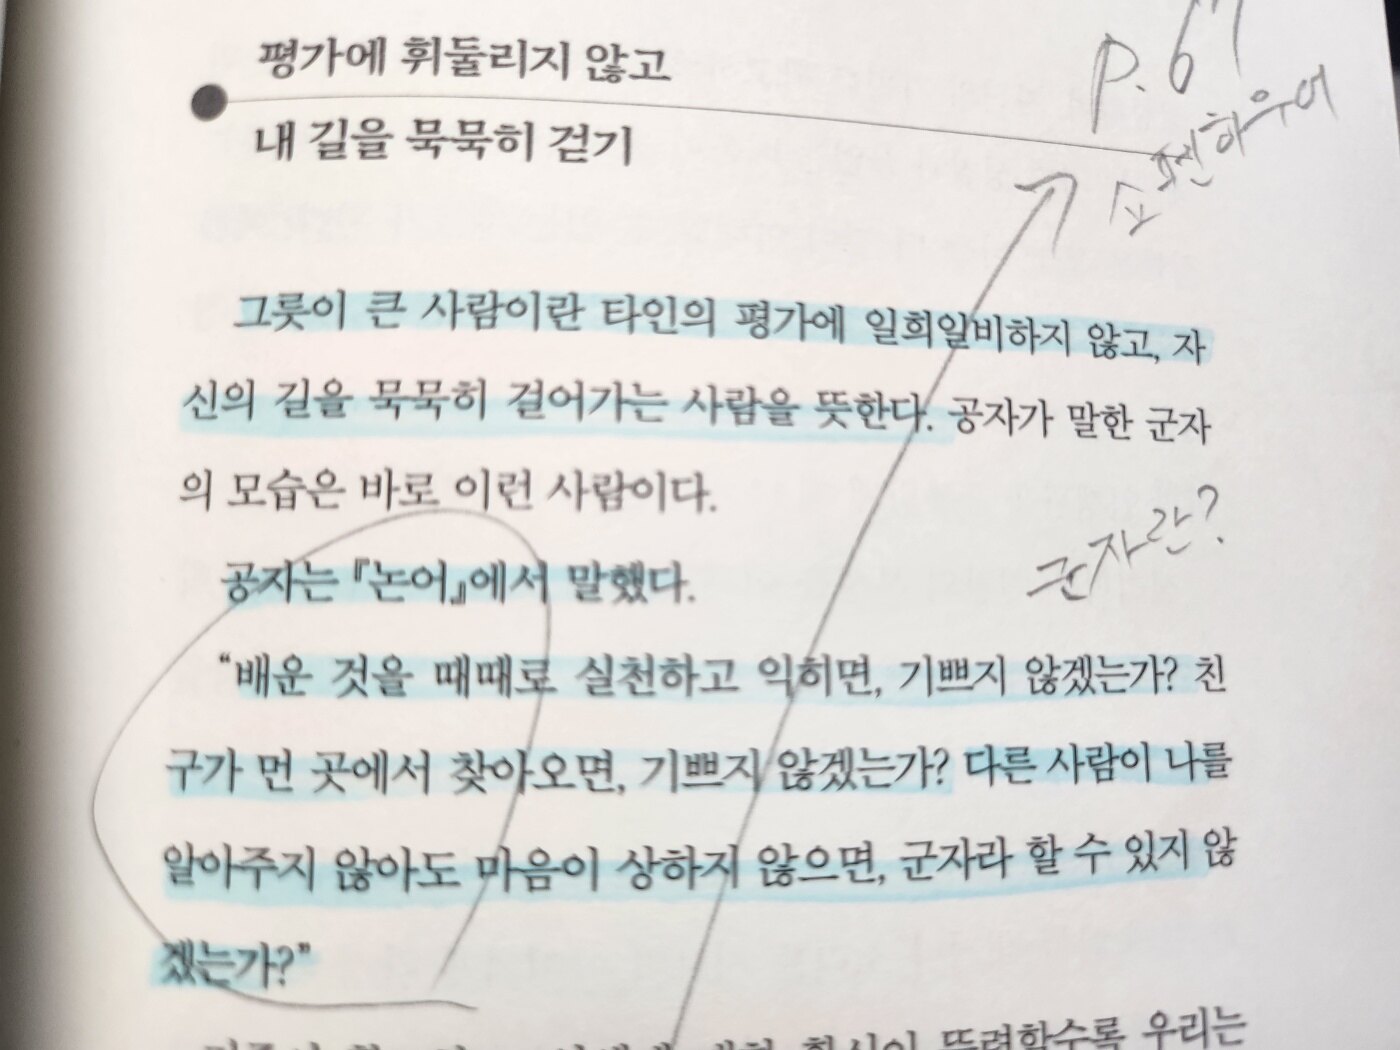 평가에 휘둘리지 않고
내 길을 묵묵히 걷기
p. 67
쇼펜하우어
그릇이 큰 사람이란 타인의 평가에 일희일비하지 않고, 자
신의 길을 묵묵히 걸어가는 사람을 뜻한다. 공자가 말한 군자
의 모습은 바로 이런 사람이다.
군자란?
공자는 『논어』에서 말했다.
“배운 것을 때때로 실천하고 익히면, 기쁘지 않겠는가? 친
구가 먼 곳에서 찾아오면, 기쁘지 않겠는가? 다른 사람이 나를
알아주지 않아도 마음이 상하지 않으면, 군자라 할 수 있지 않
겠는가?”
확신이 뚜렷할수록 우리는